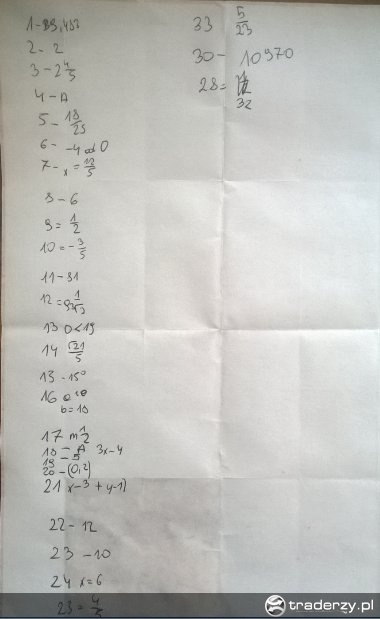 1-89,482
2- 2
3 - 2 4/5
4 - A
5 - 18/25
6 - -4 od 0
7- x = 12/5
8 - 6
9 = 1/2
10 = - 3/5
11 - 81
12 =
13 0<19
14 √21/5
15 - 15°
16 a
b=10
17 m 1/2
18 = A 3x-4
19 - 5
20 - (0,2)
21 x-3 + y-1)
22 - 12
23 - 10
24 x=6
25 = 4/3
33 5/23
30 - 10970
28 =
32
traderzy.pl